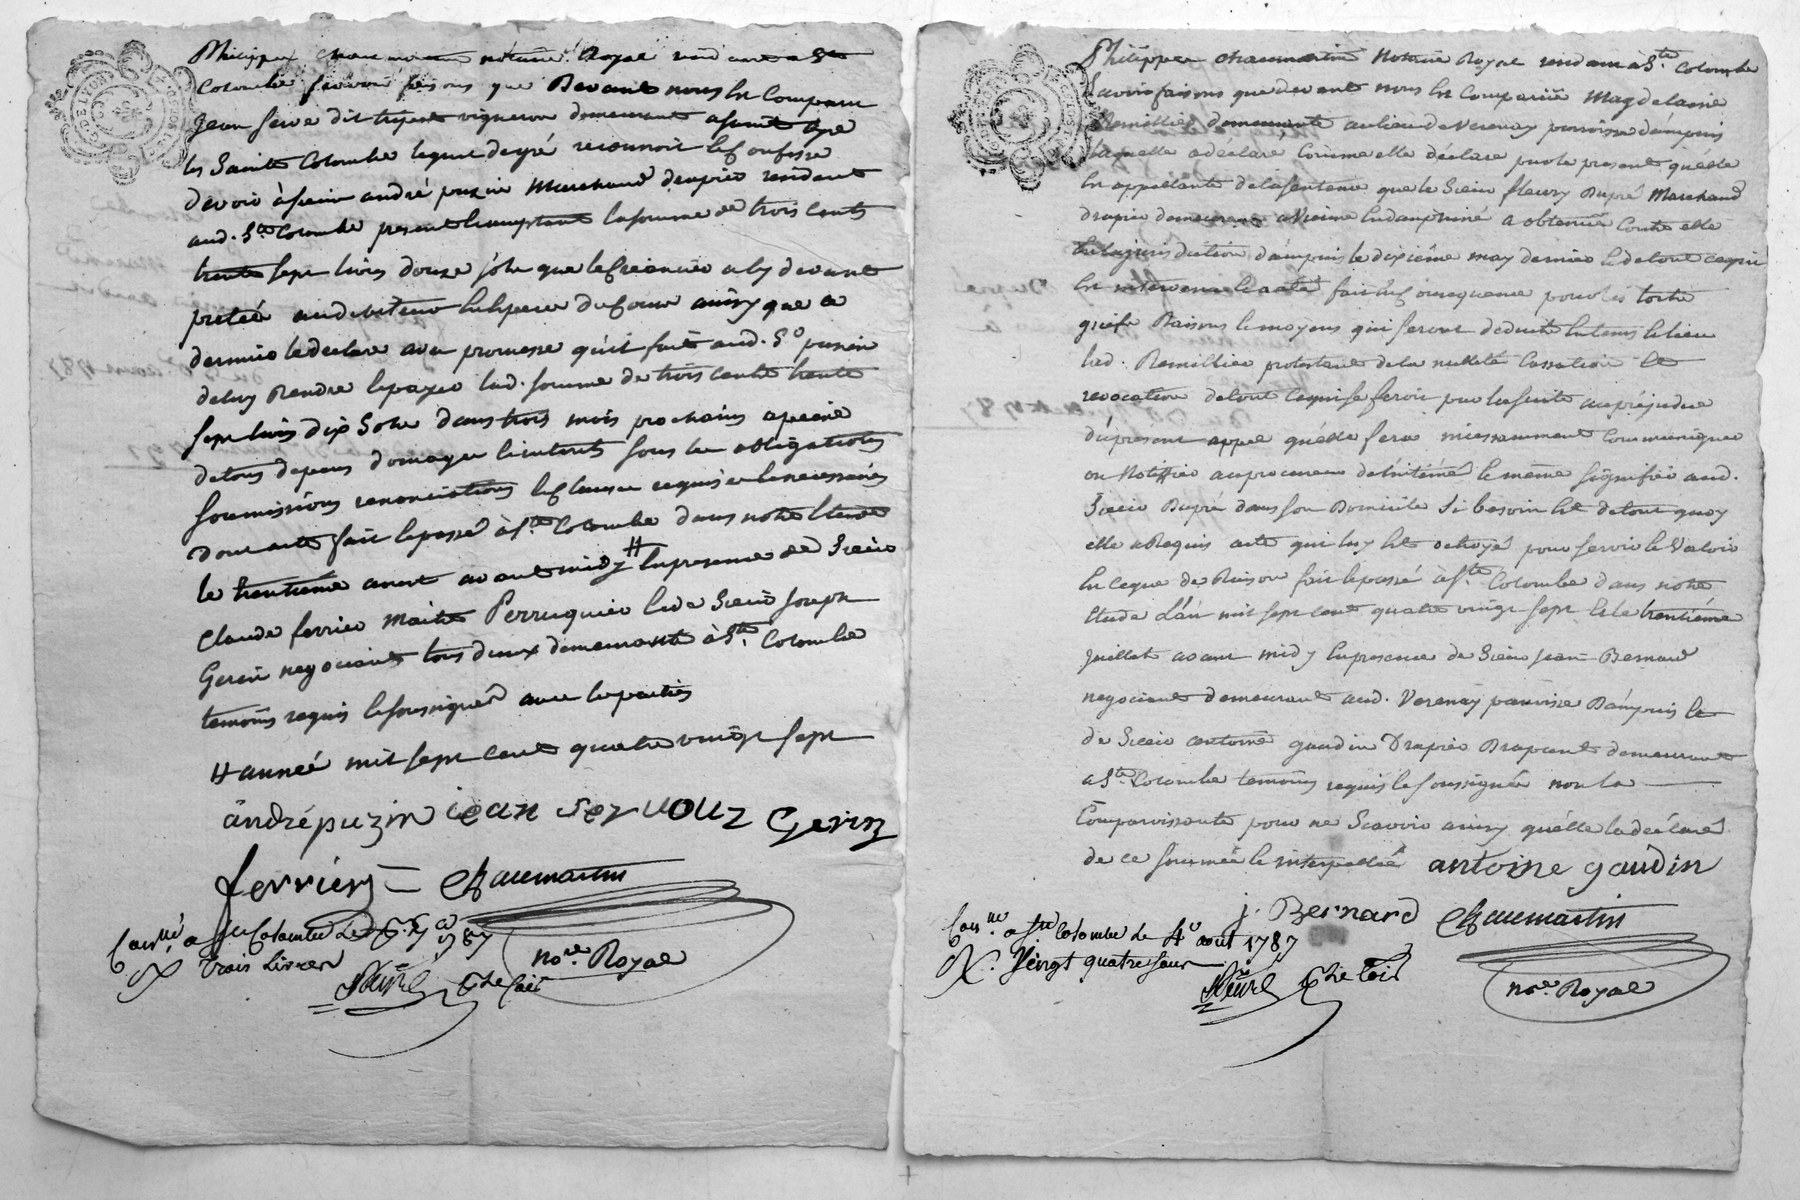 Philippe Chaumartin notaire Royal residant a Ste
Colombe scavoir faisons que Devant nous est Comparu
Jean serve dit vigneron demeurant a saint Cyr
les Sainte Colombe lequel de gré reconnoit et confesse
devoir à sieur andré puzin Marchand drapier residant
aud. Ste. Colombe present et acceptant la somme de trois cents
trente sept livres douze sols que le creancier a cy devant
pretée au debiteur en espece de cour ainsy que ce
dernier le declare avec promesse qu'il fait aud. Sr puzin
de luy Rendre et payer lad. somme de trois cents trente
sept livres dix Sols dans trois mois prochains a peine
de tous depens domages et interets sous les obligations
soumissions renonciations et clauses requises et necessaires
dont acte fait et passé à Ste. Colombe dans notre Etude
le trentieme aout avant midy # en presence de Sieur
Claude ferrier Maitre Perruquier et de Sieur Joseph
Gerin negociant tous deux demeurants à Ste. Colombe
temoins requis et soussignés avec les parties
# année mil sept cent quatre vingt sept
andré puzin jean servouz Gerin
ferrier Chaumartin
no.re Royal
Con.llé a Ste Colombe le 1787
Trois Livres
Philippe Chaumartin Notaire Royal residant à Ste. Colombe
Scavoir faisons que devant nous est Comparüe Magdelaine
Remillier demeurante au lieu de Verenay parroisse d'ampuis
laquelle a déclaré Comme elle déclare par le present qu'elle
est appellante de la sentence que le Sieur fleury Dupré Marchand
drapier demeurant a Vienne en dauphiné a obtenue Contre elle
en la jurisdiction d'ampuis le dixième may dernier et de tout ce qui
est intervenu et a été fait en consequence pour les torts
griefs Raisons et moyens qui seront deduits en tems et lieu
lad. Remillier protestant de la nullité Cassation et
revocation de tout ce qui se feroit par la suite au préjudice
du present appel qu'elle fera incessamment Communiquer
ou Notiffier au procureur de l'intimé et même signifier aud.
Sieur Dupré dans son Domicile Si besoin est de tout quoy
elle a Requis acte qui luy est octroyé pour servir et valoir
en ce que de Raison fait et passé à Ste. Colombe dans notre
Etude L'an mil sept cent quatre vingt sept et le trentième
juillet avant midy en presence de Sieur jean Bernard
negociant demeurant aud. Verenay parroisse D'ampuis et
de Sieur antoine gaudin Drapier Drapant demeurant
a Ste. Colombe temoins requis et soussignés non la
Comparoissante pour ne Scavoir ainsy qu'elle la déclaré
de ce sommée et interpellée antoine gaudin
j. Bernard Chaumartin
no.re Royal
Con.llé a Ste Colombe le 4e aout 1787
Vingt quatre sous